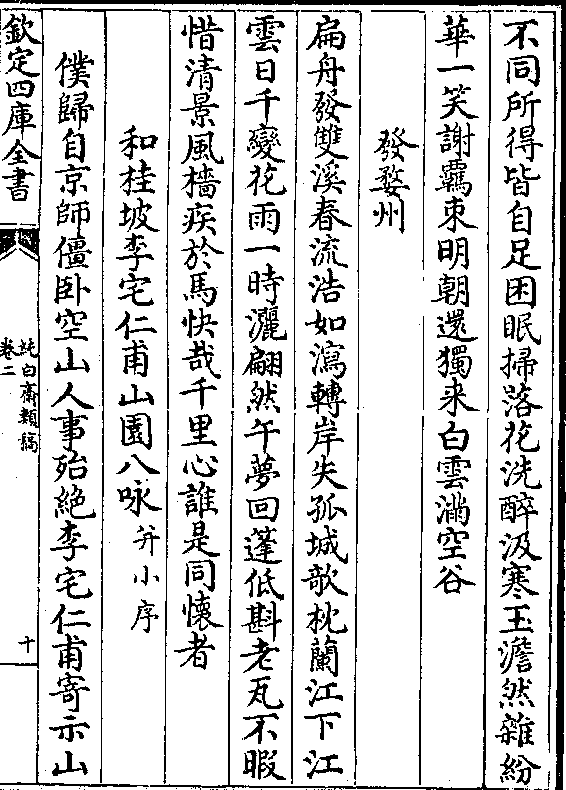 不同所得皆自足困眠掃落花洗醉汲寒玉澹然雜紛
華一笑謝羈束明朝還獨来白雲滿空谷
發婺州
扁舟發雙溪春流浩如瀉轉岸失孤城歌枕蘭江下江
雲日千變花雨一時灑翩然午夢回蓬低斟老瓦不暇
惜清景風檣疾於馬快哉千里心誰是同懷者
和桂坡李宅仁甫山園八咏并小序
僕歸自京師僵卧空山人事殆絶李宅仁甫寄示山
欽定四庫全書
純白齋類稿
卷二
十